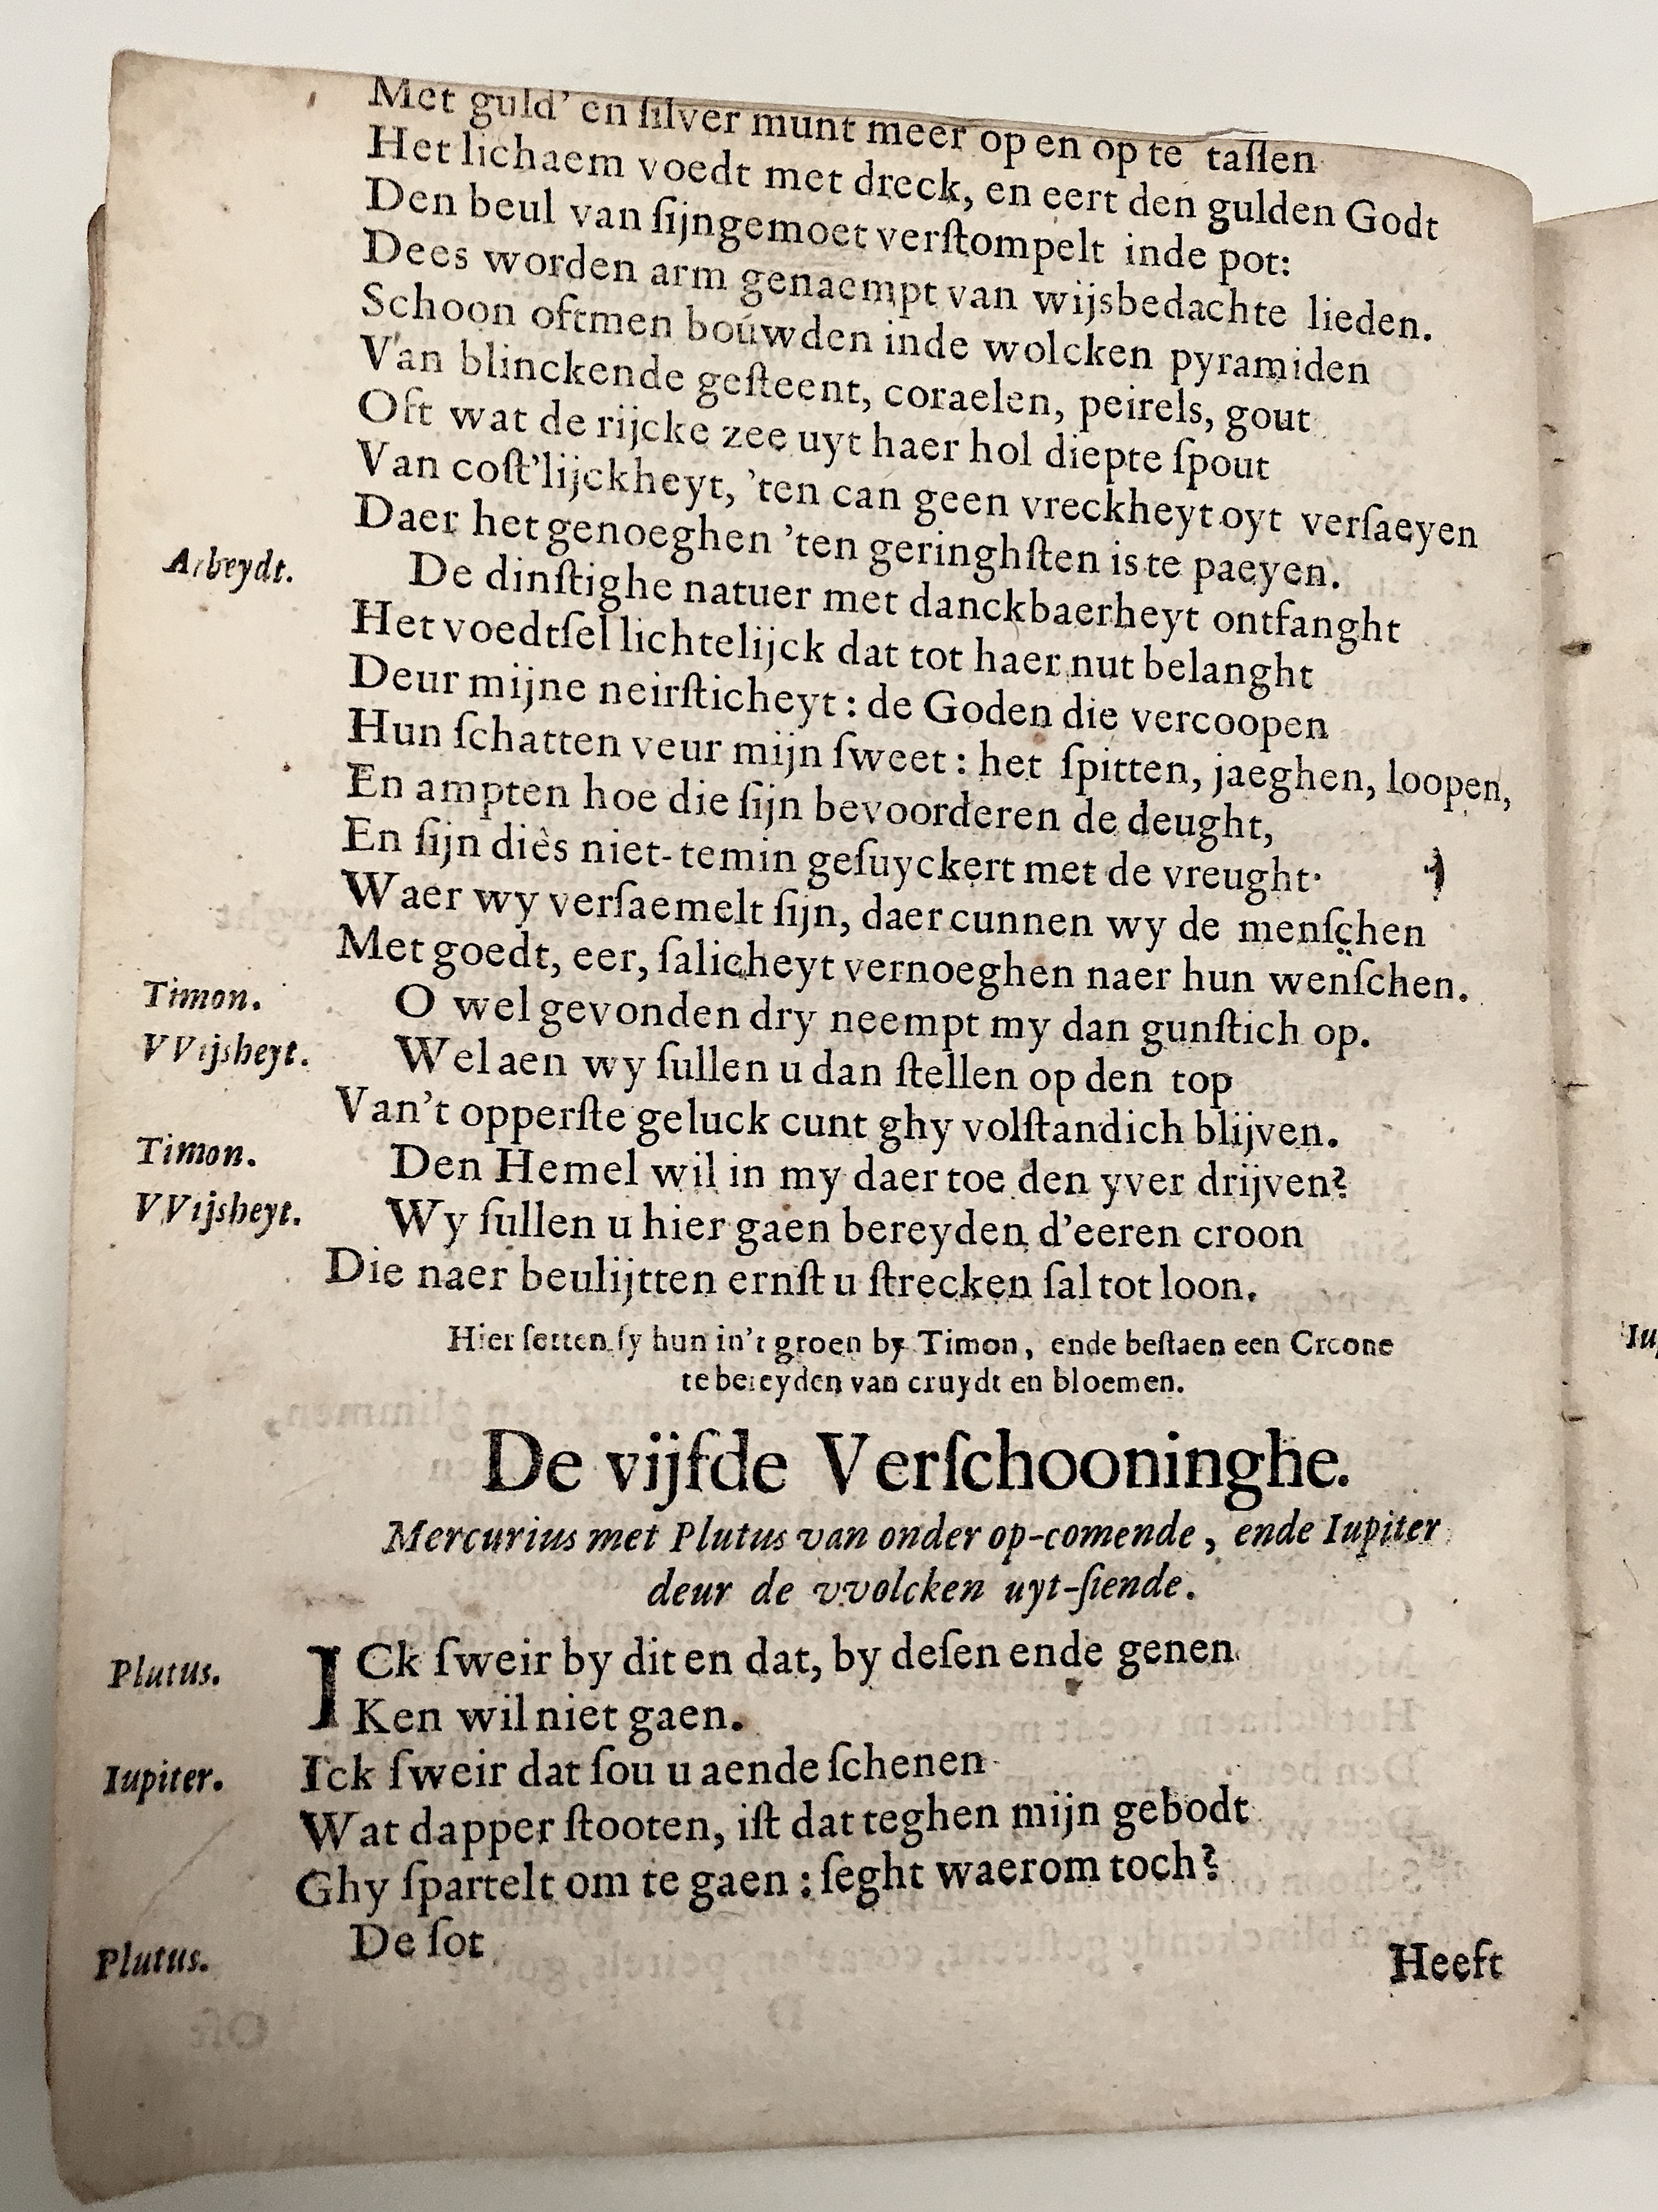 Met guld' en ſilver munt meer op en op te taſſen
Het lichaem voedt met dreck, en eert den gulden Godt
Den beul van ſijngemoet verſtompelt inde pot:
Dees worden arm genaempt van wijsbedachte lieden.
Schoon oftmen bouwden inde wolcken pyramiden
Van blinckende geſteent, coraelen, peirels, gout
Oft wat de rijcke zee uyt haer hol diepte ſpout
Van coſt'lijckheyt, 'ten can geen vreckheyt oyt verſaeyen
Daer het genoeghen 'ten geringhſten is te paeyen.
Arbeydt. De dinſtighe natuer met danckbaerheyt ontfanght
Het voedtſel lichtelijck dat tot haer nut belanght
Deur mijne neirſticheyt : de Goden die vercoopen
Hun ſchatten veur mijn ſweet : het ſpitten, jaeghen, loopen,
En ampten hoe die ſijn bevoorderen de deught,
En ſijn diès niet-temin geſuyckert met de vreught.
Waer wy verſaemelt ſijn, daer cunnen wy de menſchen
Met goedt, eer, ſalicheyt vernoeghen naer hun wenſchen.
Timon. O wel gevonden dry neempt my dan gunſtich op.
VVijsheyt. Welaen wy ſullen u dan ſtellen op den top
Van't opperſte geluck cunt ghy volſtandich blijven.
Timon. Den Hemel wil in my daer toe den yver drijven?
VVijsheyt. Wy ſullen u hier gaen bereyden d'eeren croon
Die naer beulijtten ernſt u ſtrecken ſal tot loon.
Hier ſetten ſy hun in't groen by Timon, ende beſtaen een Croone
te bereyden van cruydt en bloemen.
De vijfde Verſchooninghe.
Mercurius met Plutus van onder op-comende, ende Iupiter
deur de vvolcken uyt-ſiende.
Plutus. ICk ſweir by dit en dat, by deſen ende genen
Ken wil niet gaen.
Iupiter. Ick ſweir dat ſou u aende ſchenen
Wat dapper ſtooten, iſt dat teghen mijn gebodt
Ghy ſpartelt om te gaen : ſeght waerom toch?
Plutus. De ſot
Heeft